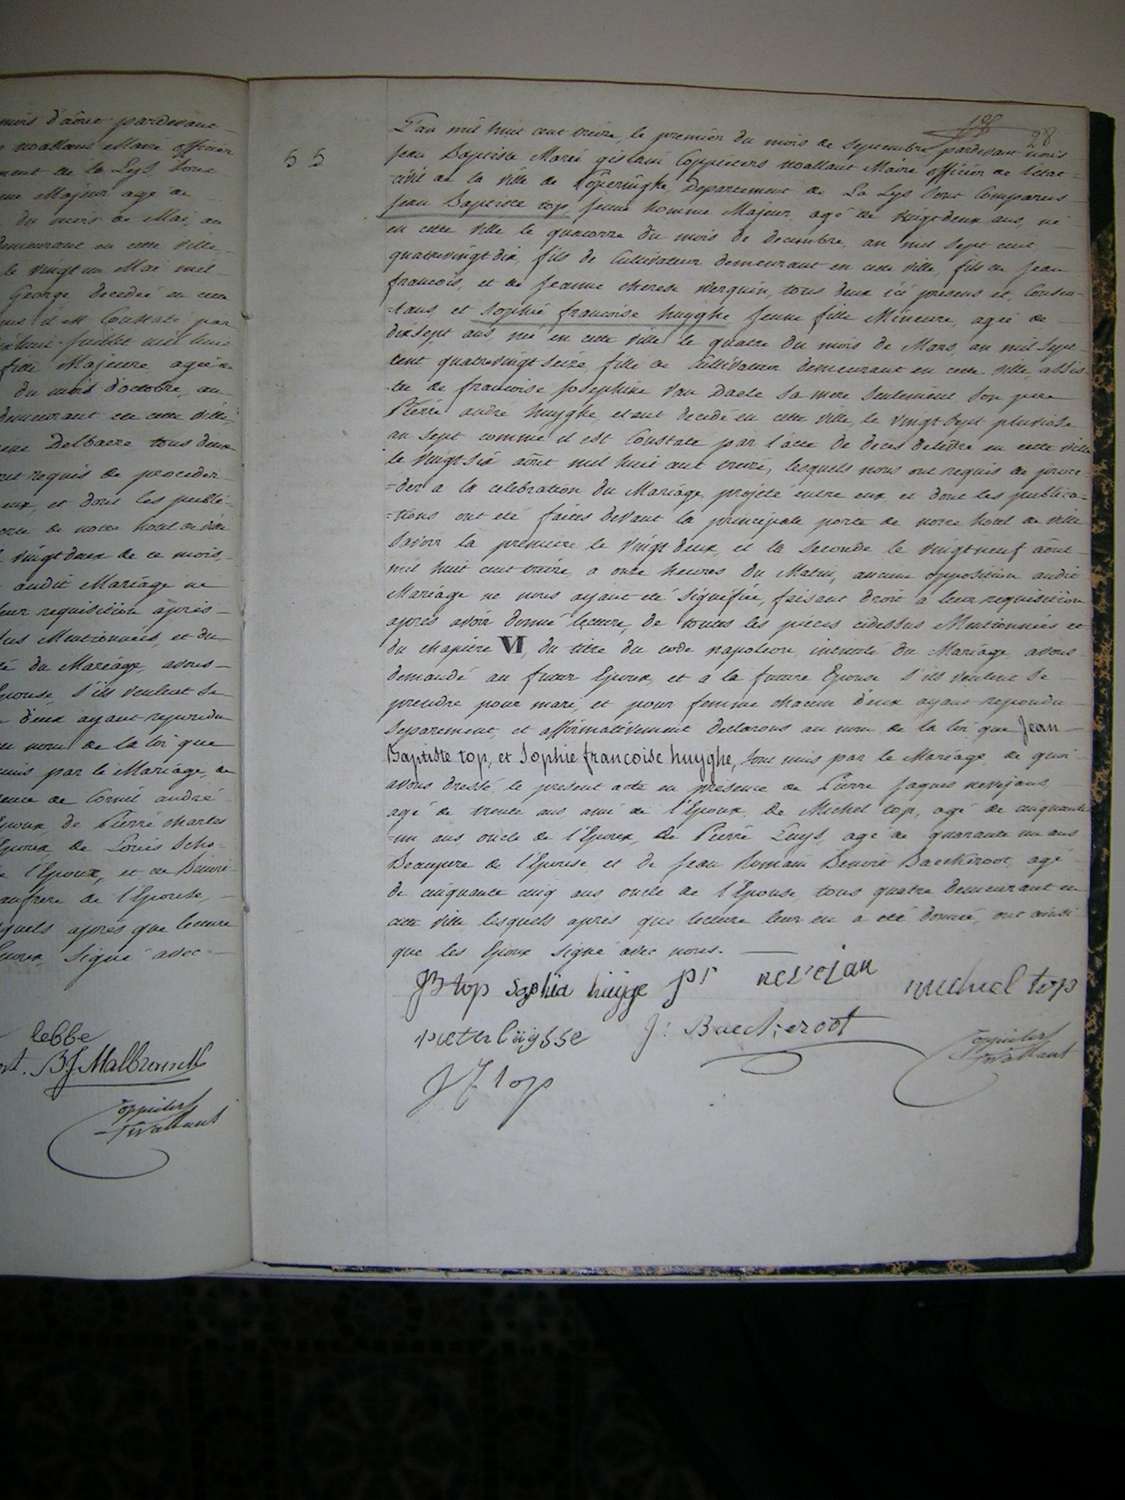 mois d'aôut pardevant
noallaut Maire officier
ment de la Lys sont
me Majeur agé de
du mois de Mai, an
demeurant en cette ville,
le vingt un Mai mil
George, decedeé en cette
me il est Constaté par
Juillet mil huit
fille Majeure agée de
du mois d'octobre, an
demeurant en cette ville,
Delbaere tous deux
ont requis de proceder
eux, et dont les publi-
porte de notre hotel de ville
vingt deux de ce mois,
audit Mariage ne
leur requisition après
sus Mentionnées, et du
du Mariage, avons
Epouse, s'ils veulent se
d'eux ayant repondu
au nom de la loi que
unis par le Mariage, de
sence de Cornil andré
Epoux, de Pierre charles
Epoux de Louis Scho-
l'Epoux, et de Benoit
aufrere de l'Epouse,
squels après que lecture
Epoux signé avec
lebbe
BJ Malbranck
Coppieters
TWallaut
55
198
28
L'an mil huit cent treize, le premier du mois de septembre pardevant nous
Jean Baptiste Marie gislain Coppieters noallaut Maire officier de l'etat-
civil de la ville de Poperinghe, Departement de La Lys sont Comparus
Jean Baptiste top, jeune homme Majeur, agé de vingt deux ans, né
en cette ville le quatorze du mois de Decembre, an mil sept cent
quatrevingt dix, fils de Cultivateur demeurant en cette ville, fils de Jean
francois, et de Jeanne therese Werquin, tous deux ici presens et, Consen-
-tans et Sophie francoise huyghe jeune fille Mineure, agée de
dixsept ans, née en cette ville le quatre du mois de Mars, an mil sept
cent quatrevingt seize, fille de Cultivateur demeurant en cette ville, assis-
-tée de francoise Josephine Van Daele sa mere seulement son pere
Pierre andre huyghe, etant decedé en cette ville, le vingt sept pluviose
an sept comme il est Constaté par l'acte de deces delivré en cette ville
le vingt six aôut mil huit cent treize, lesquels nous ont requis de proce-
-der a la celebration du Mariage projeté entre eux et dont les publica-
-tions ont eté faites devant la principale porte de notre hotel de ville
savoir la premiere le vingt deux, et la seconde le vingt neuf aôut
mil huit cent treize, a onze heures du Matin, aucune opposition audit
Mariage ne nous ayant eté signifiée, faisant droit a leur requisition
après avoir donné lecture, de toutes les pièces cidessus Mentionnées et
du chapitre VI, du titre du code napoleon, intitulé du Mariage avons
demandé au futur Epoux, et a la future Epouse s'ils veulent se
prendre pour mari, et pour femme chacun d'eux ayant repondu
separement, et affirmativement declarons au nom de la loi que Jean
Baptiste top, et Sophie francoise huyghe, sont unis par le Mariage, de quoi
avons dressé le present acte en presence de Pierre Jaques nevejans
agé de trente ans ami de l'Epoux, de Michel top, agé de cinquante
-un ans oncle de l'Epoux, de Pierre Luys, agé de quarante un ans
Beaupere de l'Epouse et de Jean Romain Benoit Baeckeroot, agé
de cinquante cinq ans oncle de l'Epouse tous quatre demeurant en
cette ville lesquels après que lecture leur en a eté donnée, ont ainsi
que les Epoux signé avec nous.
JB top sophia huijge pr nevejan michiel top
pieter luÿsse J: Baeckeroot
Coppieters
TWallaut
JF top